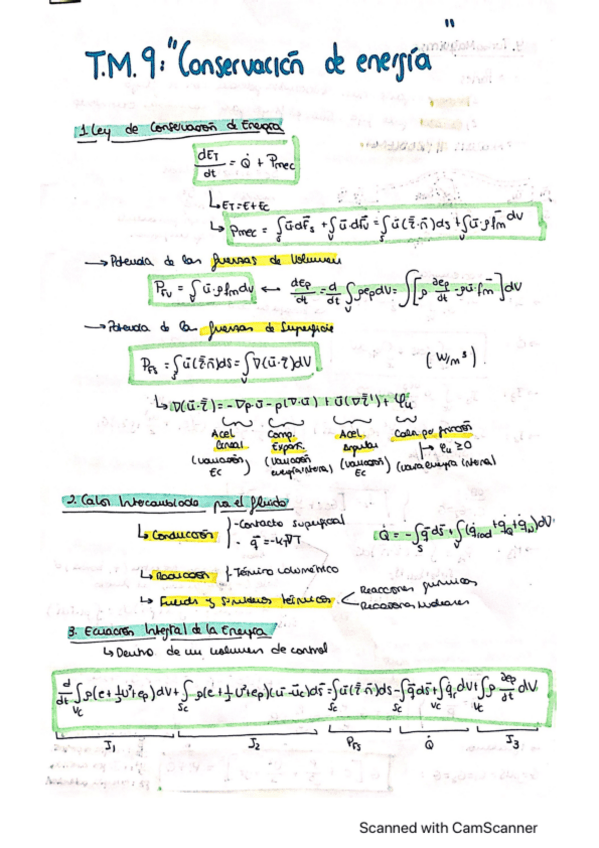 T.M. 9: "Conservación de energía"
1. Ley de Conservación de Energía
dE_T/dt = Q̇ + Pmec
↳ E_T = E + Ec
↳ Pmec = ∫_S ū dF̄s + ∫_V ū·dF̄v = ∫_S ū(τ̄·n̄)ds + ∫_V ū·ρf̄m dV
→ Potencia de las fuerzas de Volumen
P_FV = ∫_V ū·ρf̄m dv ↔ dep/dt = d/dt ∫_V ρep dV = ∫[ρ ∂ep/∂t - ρū·f̄m] dV
→ Potencia de las fuerzas de Superficie
P_FS = ∫_S ū(τ̄·n̄)dS = ∫_V ∇(ū·τ̄)dV (W/m³).
↳ ∇(ū·τ̄) = -∇p·ū - p(∇·ū) + ū(∇τ̄') + φu
Acel. Lineal Comp. Expans. Acel. Angular Calor por fricción
↳ φu ≥ 0
(variación Ec) (variación energía interna) (variación Ec) (varía energía interna)
2. Calor Intercambiado por el fluido
↳ Conducción - Contacto superficial
- q̄ = -k∇T
Q̇ = -∫_S q̄ ds + ∫_V (q̇rad + q̇Q + q̇N) dV
↳ Radiación - Término volumétrico
↳ Fuentes y Sumideros térmicos < Reacciones químicas
Reacciones nucleares
3. Ecuación Integral de la Energía
↳ Dentro de un volumen de control
d/dt ∫_Vc ρ(e + ½U² + ep) dV + ∫_Sc ρ(e + ½U² + ep)(ū - ūc) ds̄ = ∫_Sc ū(τ̄·n̄)ds - ∫_Sc q̄ ds̄ + ∫_Vc q̇r dV + ∫_Vc ρ ∂ep/∂t dV
I₁ I₂ P_FS Q̇ I₃
Scanned with CamScanner